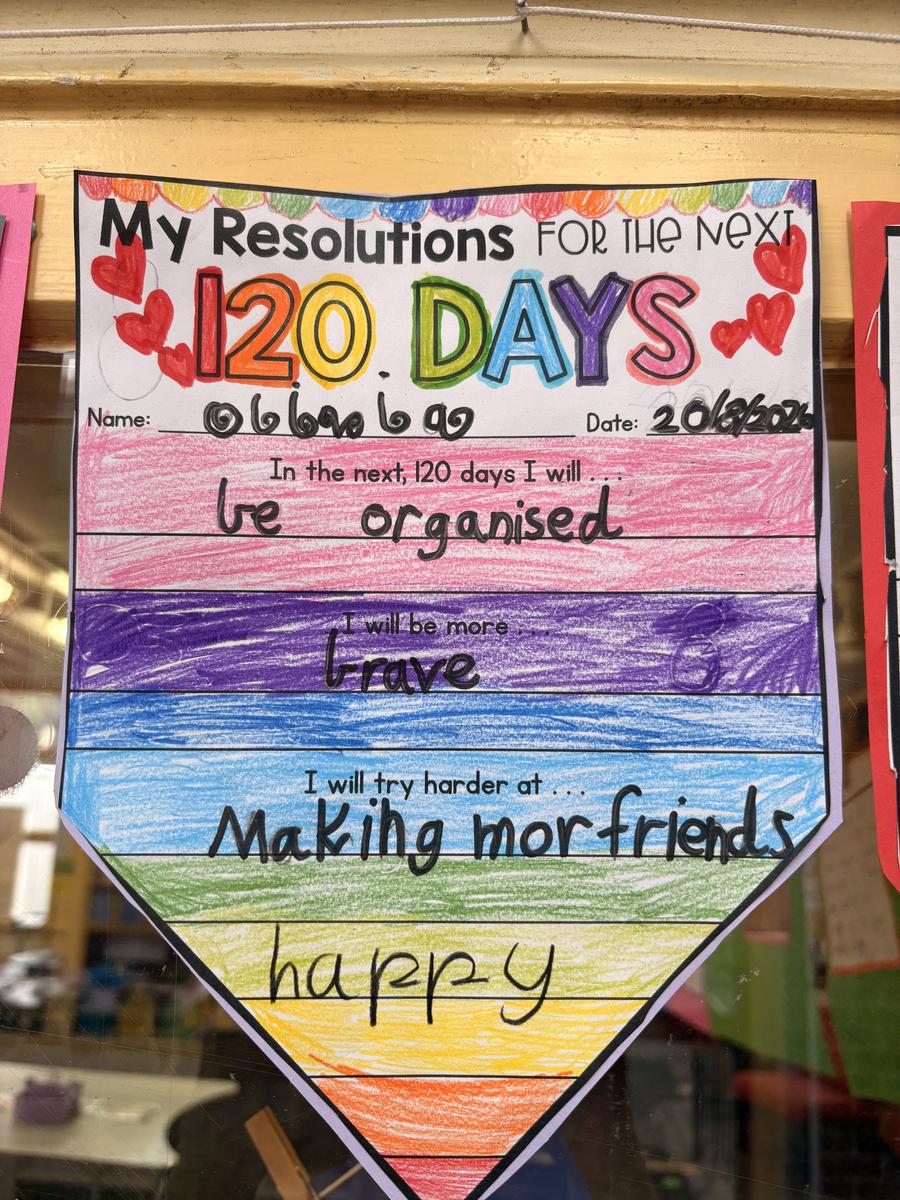 My Resolutions FOR THE NEXT
120 DAYS
Name:
Date: 20/8/2026
In the next, 120 days I will ...
be organised
I will be more ...
brave
I will try harder at ...
Making mor friends
happy